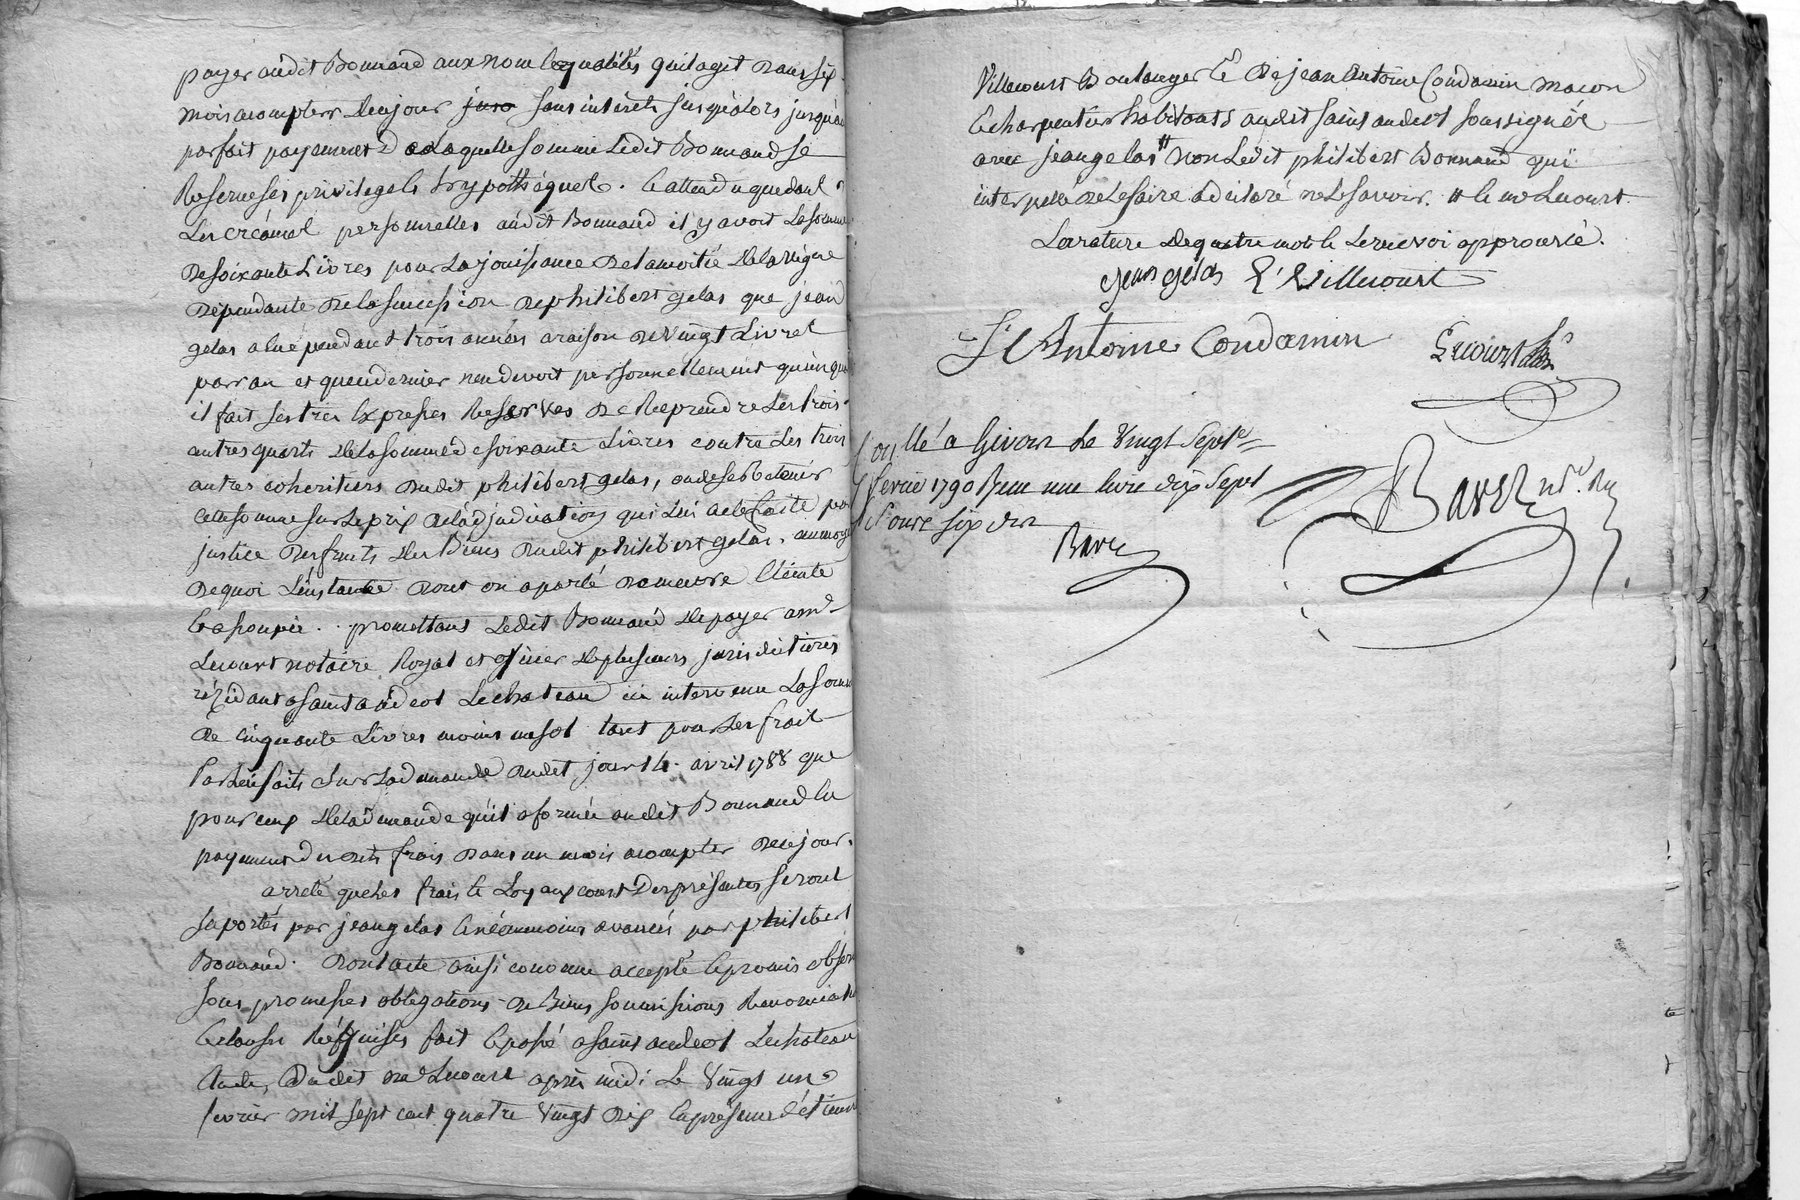 payer audit Bonnand aux nom & qualités quil agit dans six
mois acompter de ce jour juro sans intérêts jusqualors jusquau
parfait payement de laquelle somme Ledit Bonnand se
Reserve ses privileges & hypotheques. Et attendu que dans
Les créances personnelles audit Bonnand il y avoit La somme
de soixante Livres pour La jouissance de la moitié de la vigne
dépendante de la succession de philibert gelas que jean
gelas a lué pendant trois années a raison de vingt Livres
par an et que ce dernier n'en devoit personnellement qu'un quart
il fait ses tres Expresses Reserves de Reprendre Les trois
autres quarts de la somme de soixante Livres contre Les trois
autres cohéritiers dudit philibert gelas, ou de se Retenir
cette somme sur Le prix de l'adjudication qui Lui a été faite par
justice des fruits des Biens dudit philibert gelas. au moyen
de quoi L'instance dont on a parlé demeure Eteinte
& assoupie. promettant Ledit Bonnand de payer a me
Lucourt notaire Royal et officier de plusieurs jurisdictions
résidant a saint andeol Le chateau ici intervenu La somme
de cinquante Livres moins un sol tant pour Les frais
par Lui faits sur La demande dudit jour 14 avril 1788 que
pour ceux de la demande qu'il a formée audit Bonnand En
payement desdits frais dans un mois acompter de ce jour.
arreté que Les frais & Loyaux cousts des présentes seront
suportés par jean gelas & néanmoins avancés par philibert
Bonnand. dont acte ainsi convenu accepté & promis observer
sous promesses obligations de Biens soumissions Renonciations
& clauses Réquises fait & passé a saint andeol Le chateau
Etude dudit me Lucourt après midi Le vingt un
fevrier mil sept cent quatre vingt dix En présence d'étienne
Villecourt Boulanger & de jean Antoine Condamin macon
& charpentier habitants audit saint andeol soussignés
avec jean gelas # non Ledit philibert Bonnand qui
interpellé de Le faire a déclaré ne Le savoir. # & me Lucourt
La rature de quatre mots & Le renvoi approuvé.
jean gelas E Villecourt
J Antoine Condamin
Lucourt
Conllé a Givors Le Vingt Sept
fevrier 1790 Reçu une livre dix Sept
Sous six drs
Baret
Baret nre. Ry